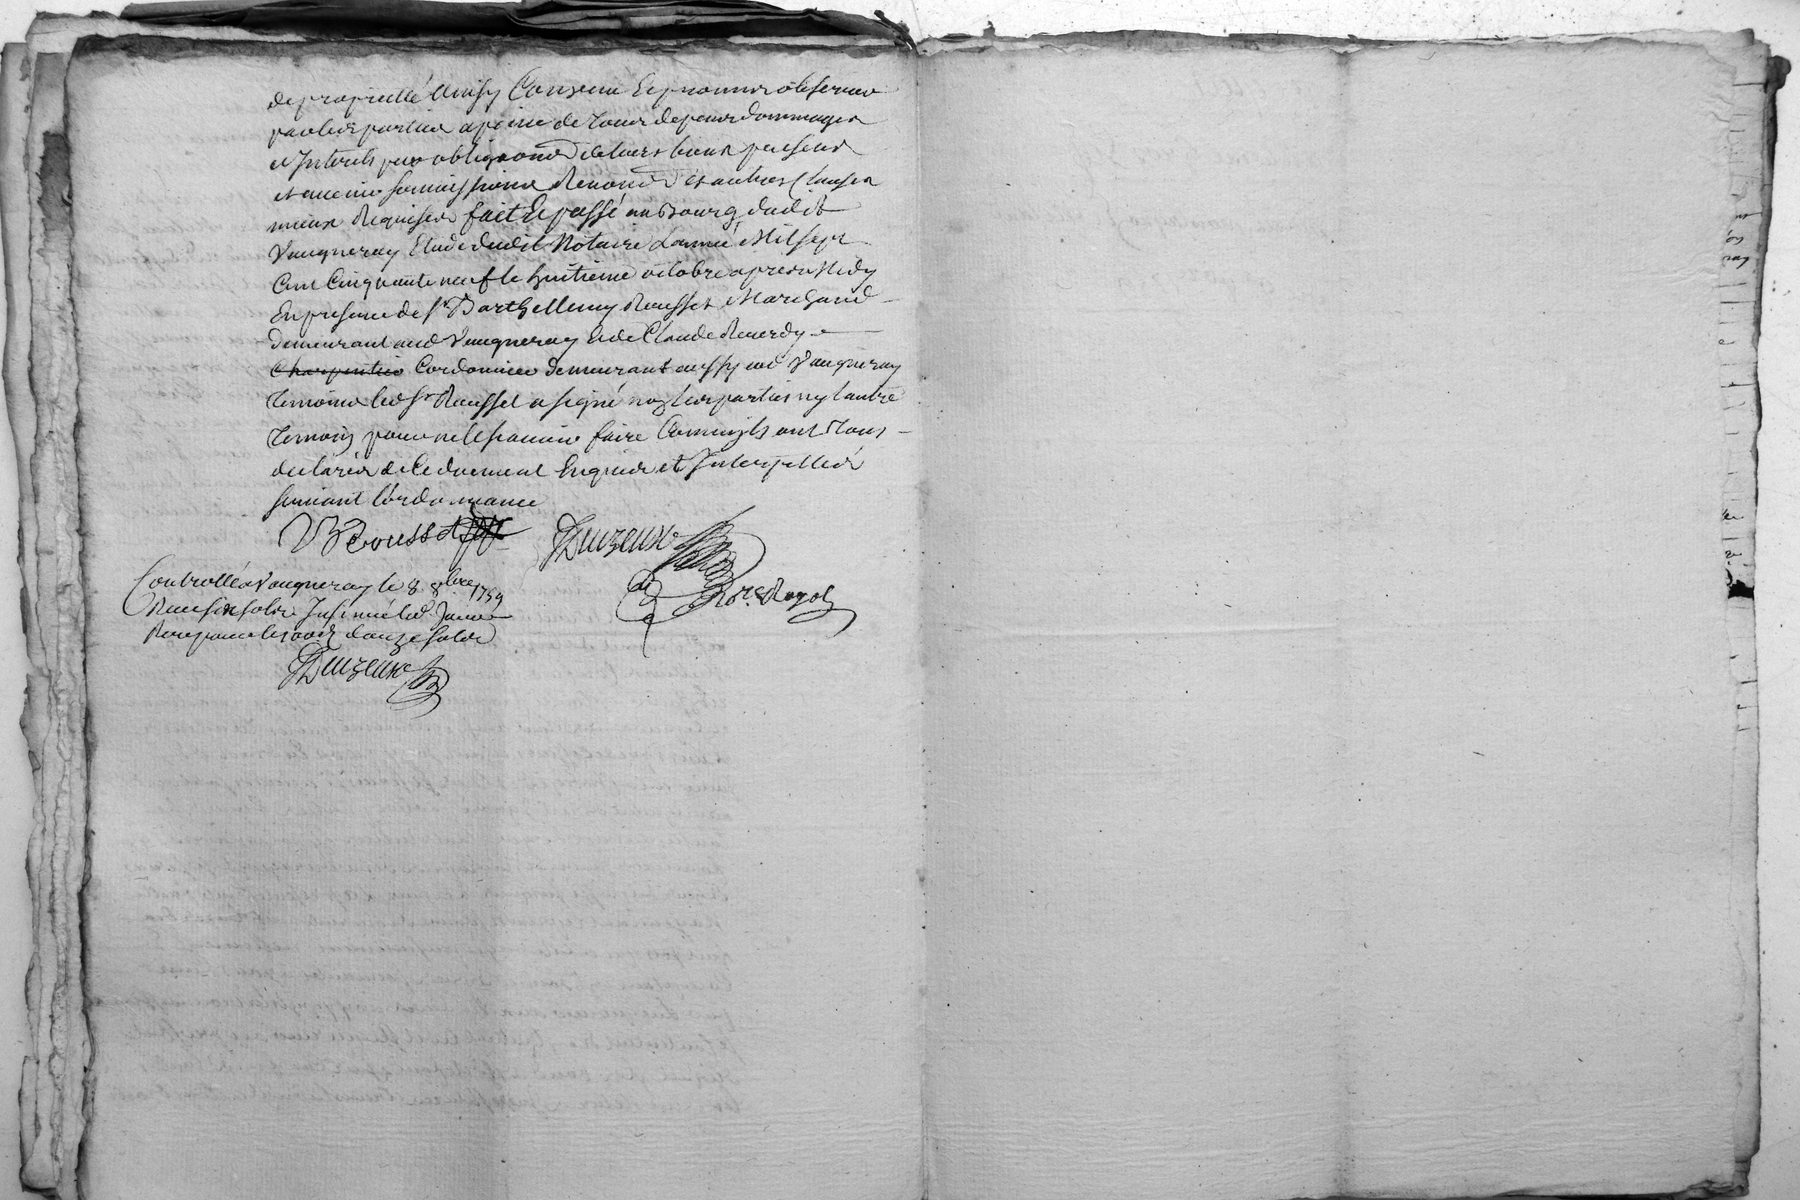 de proprietté Ainsy Convenu et promis observer
par les parties a peine de tous depens dommages
et Interets par obligaon de leurs biens presens
et avenir soumissions Renond et autres Clauses
mieux Requises fait Et passé au Bourg dudit
Vaugneray Etude dudit Notaire L'année Mil sept
Cent Cinquante neuf le huitieme octobre apres Midy
En presence de sr Barthellemy Rousset Marchand
demeurant aud Vaugneray Et de Claude Reverdy
Charpentier Cordonnier demeurant aussy aud Vaugneray
Temoins led sr Rousset a signé non les parties ny l'autre
Temoin pour ne le sçavoir faire Comm'ils ont Tous
declarés de Ce duement Enquis et Interpellés
suivant l'ordonnance
B Rousset
Controllé a Vaugneray le 8 8bre 1759
Reçu six sols Insinué led Jour
Reçu pour le 100e douze sols